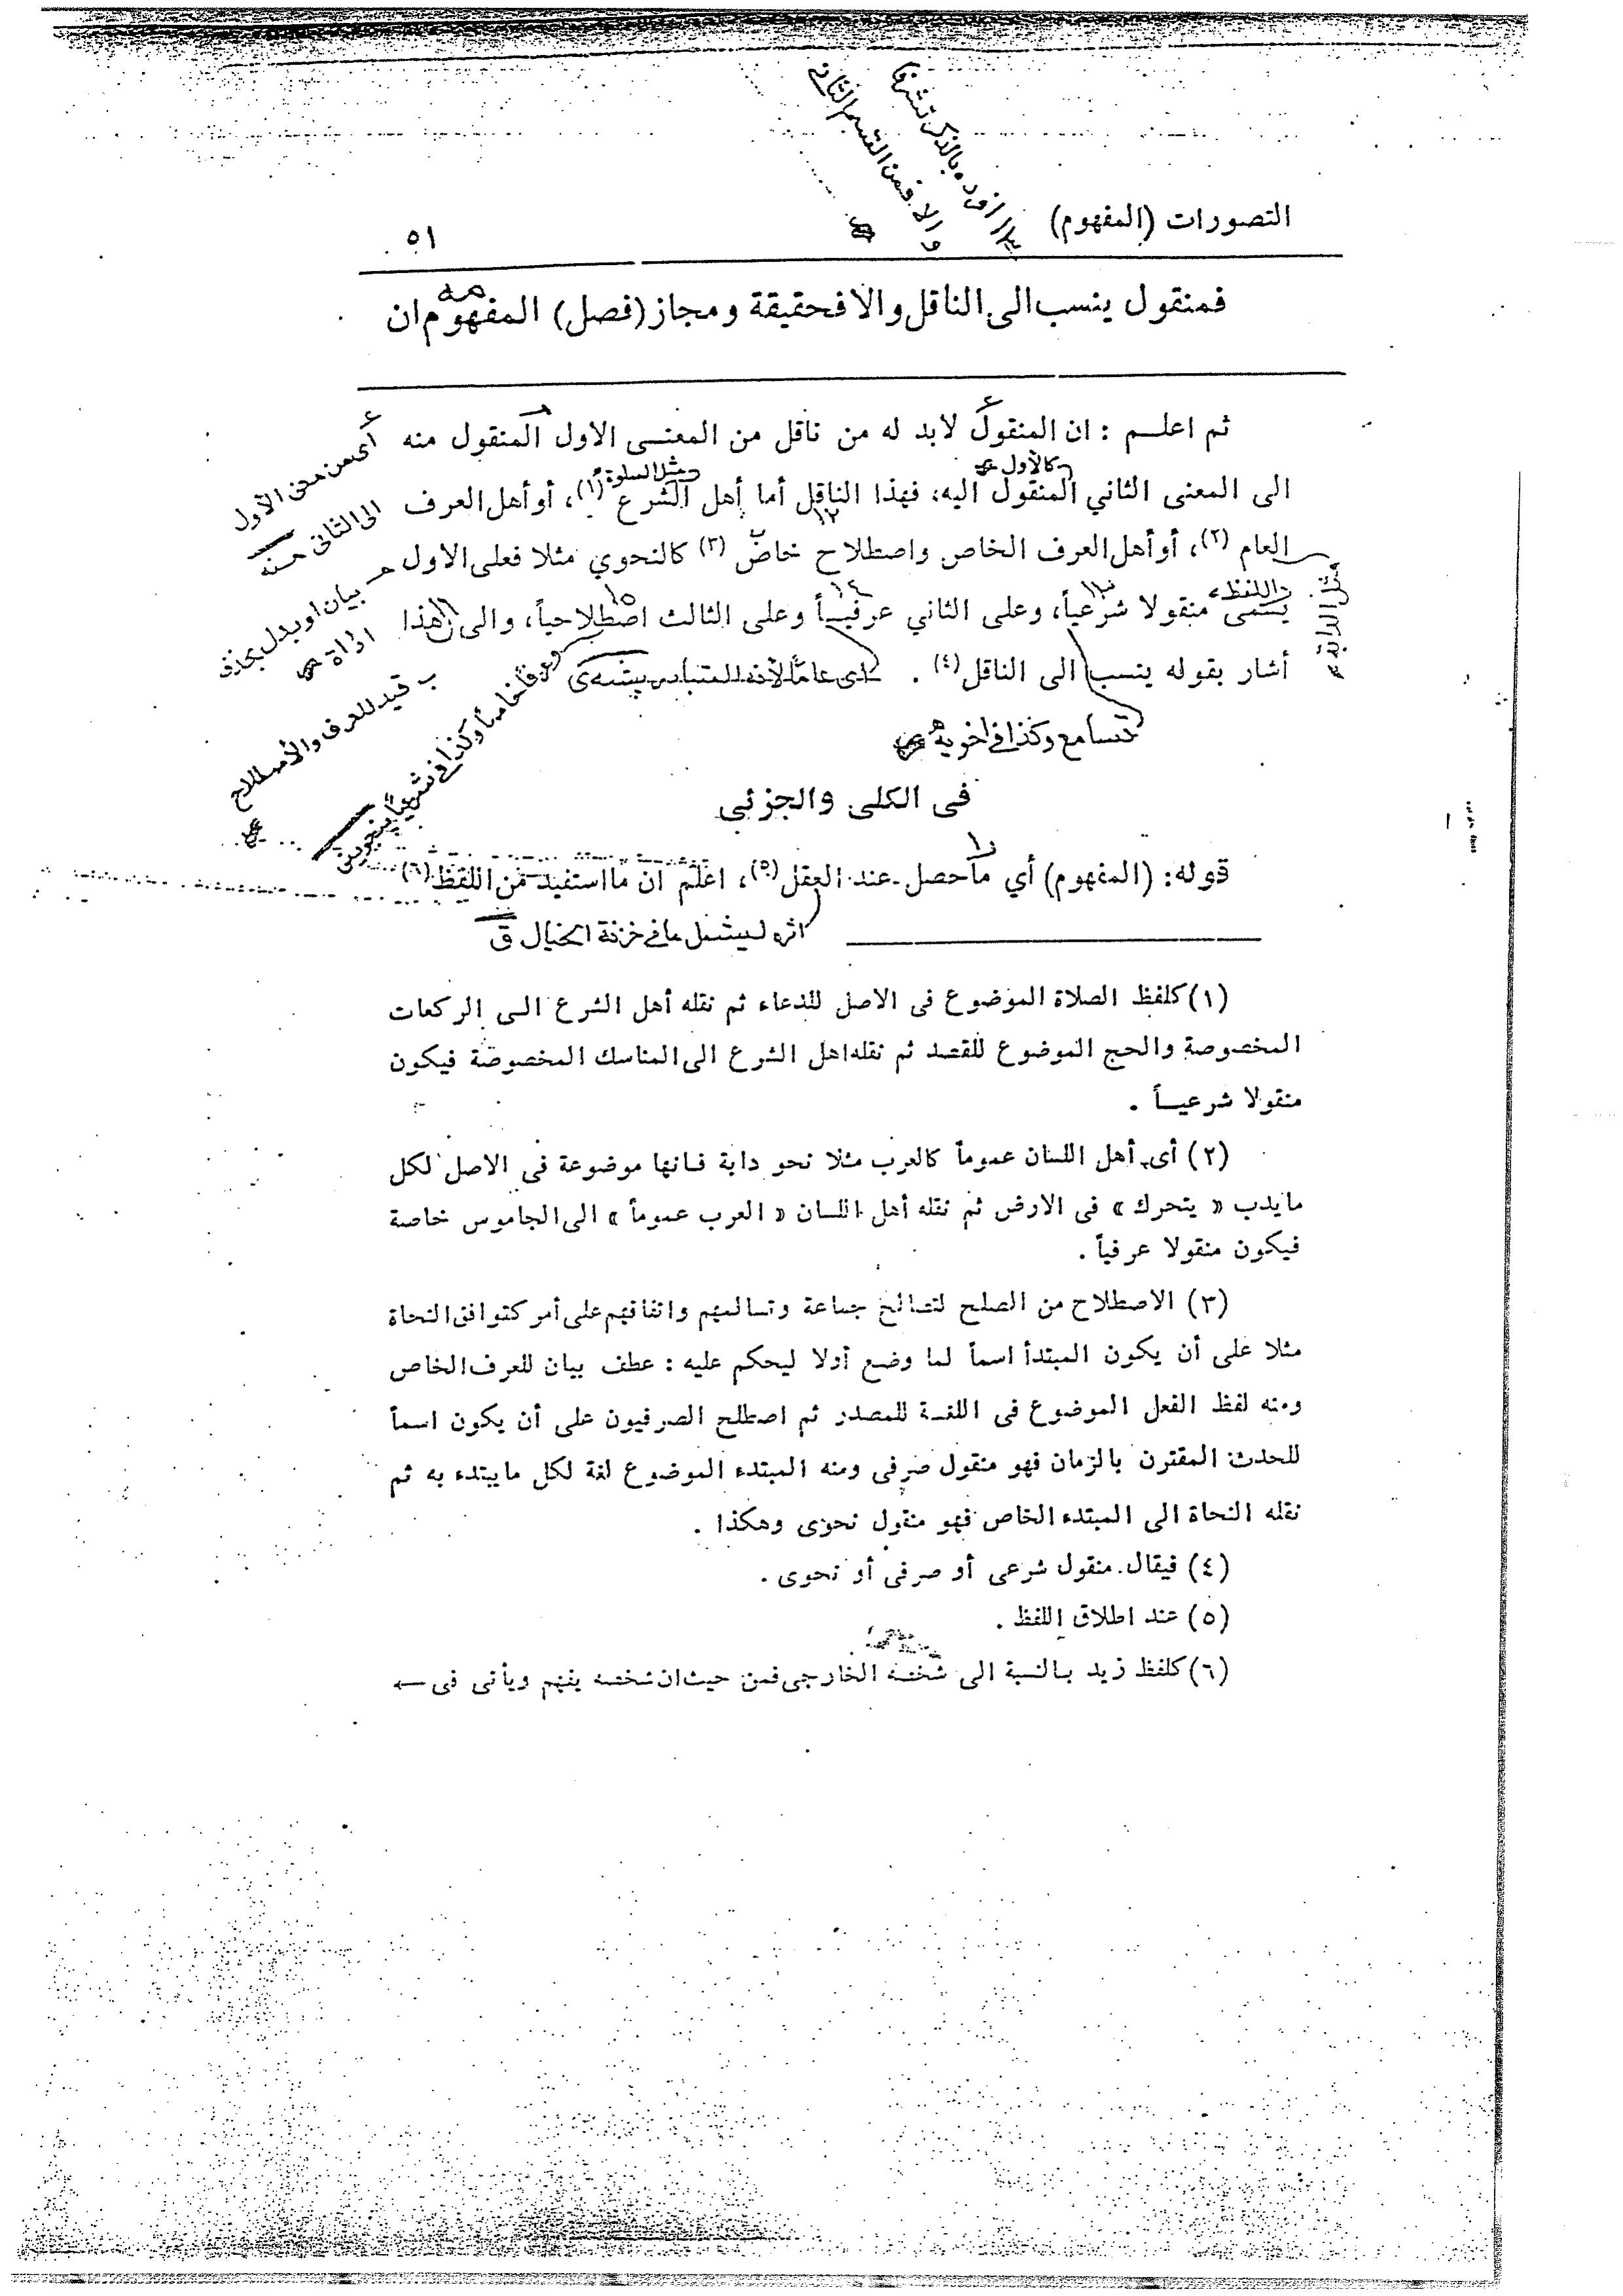 التصورات (المفهوم)
٥١
فمنقول ينسب الى الناقل والا فحقيقة ومجاز (فصل) المفهوم ان
ثم اعلـم : ان المنقول لابد له من ناقل من المعنـى الاول المنقول منه
الى المعنى الثاني المنقول اليه، فهذا الناقل أما أهل الشرع (١)، أو أهل العرف
العام (٢)، أو أهل العرف الخاص واصطلاح خاص (٣) كالنحوي مثلا فعلى الاول
يسمى منقولا شرعياً، وعلى الثاني عرفيـاً وعلى الثالث اصطلاحياً، والى هذا
أشار بقوله ينسب الى الناقل (٤) .
أى من معنى الأول
الى الثانى
بيان او بدل بحذف
قيد للعرف والأصطلاح
تسامح وكذا في اخويه
في الكلى والجزئى
قوله: (المفهوم) أي ما حصل عند العقل (٥)، اعلم ان ما استفيد من اللفظ (٦)
اثره ليشمل ما في خزنة الخيال ق
(١) كلفظ الصلاة الموضوع فى الاصل للدعاء ثم نقله أهل الشرع الـى الركعات
المخصوصة والحج الموضوع للقصد ثم نقله اهل الشرع الى المناسك المخصوصة فيكون
منقولا شرعيـاً .
(٢) أى أهل اللسان عموماً كالعرب مثلا نحو دابة فـانها موضوعة فى الاصل لكل
مايدب « يتحرك » فى الارض ثم نقله أهل اللسان « العرب عموماً » الى الجاموس خاصة
فيكون منقولا عرفياً .
(٣) الاصطلاح من الصلح لتصالح جماعة وتسالمهم واتفاقهم على أمر كتوافق النحاة
مثلا على أن يكون المبتدأ اسماً لما وضع أولا ليحكم عليه : عطف بيان للعرف الخاص
ومنه لفظ الفعل الموضوع فى اللغـة للمصدر ثم اصطلح الصرفيون على أن يكون اسماً
للحدث المقترن بالزمان فهو منقول صرفى ومنه المبتدء الموضوع لغة لكل مايبتدء به ثم
نقله النحاة الى المبتدء الخاص فهو منقول نحوى وهكذا .
(٤) فيقال منقول شرعى أو صرفى أو نحوى .
(٥) عند اطلاق اللفظ .
(٦) كلفظ زيد بـالنسبة الى شخصه الخارجى فمن حيث ان شخصه يفهم ويأتى فى ←